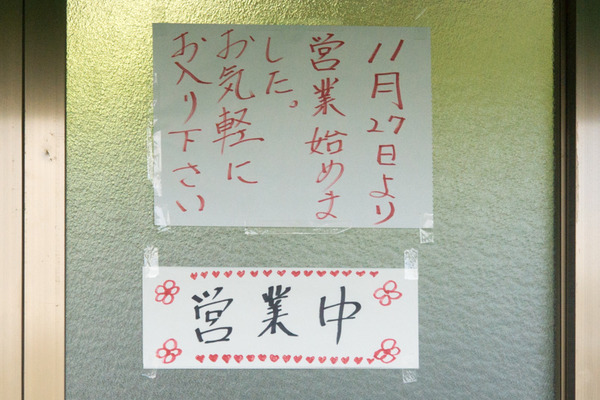 11月27日より
営業始めま
した。
お気軽に
お入り下さい
営業中